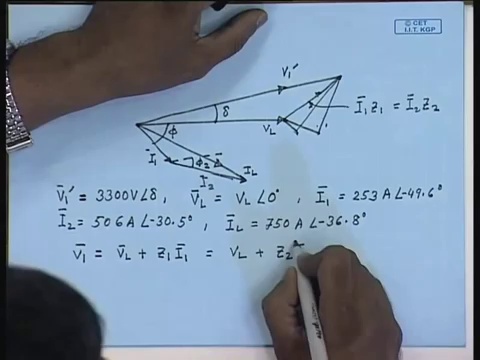 © CET
I.I.T. KGP
V̄₁′
δ
Ī₁Z₁ = Ī₂Z₂
V_L
ϕ
Ī₁
ϕ₂
Ī₂
I_L
V̄₁′ = 3300V∠δ, V̄_L = V_L∠0°, Ī₁ = 253A∠-49.6°
Ī₂ = 506A∠-30.5°, Ī_L = 750A∠-36.8°
V̄₁ = V̄_L + Z₁Ī₁ = V_L + Z₂